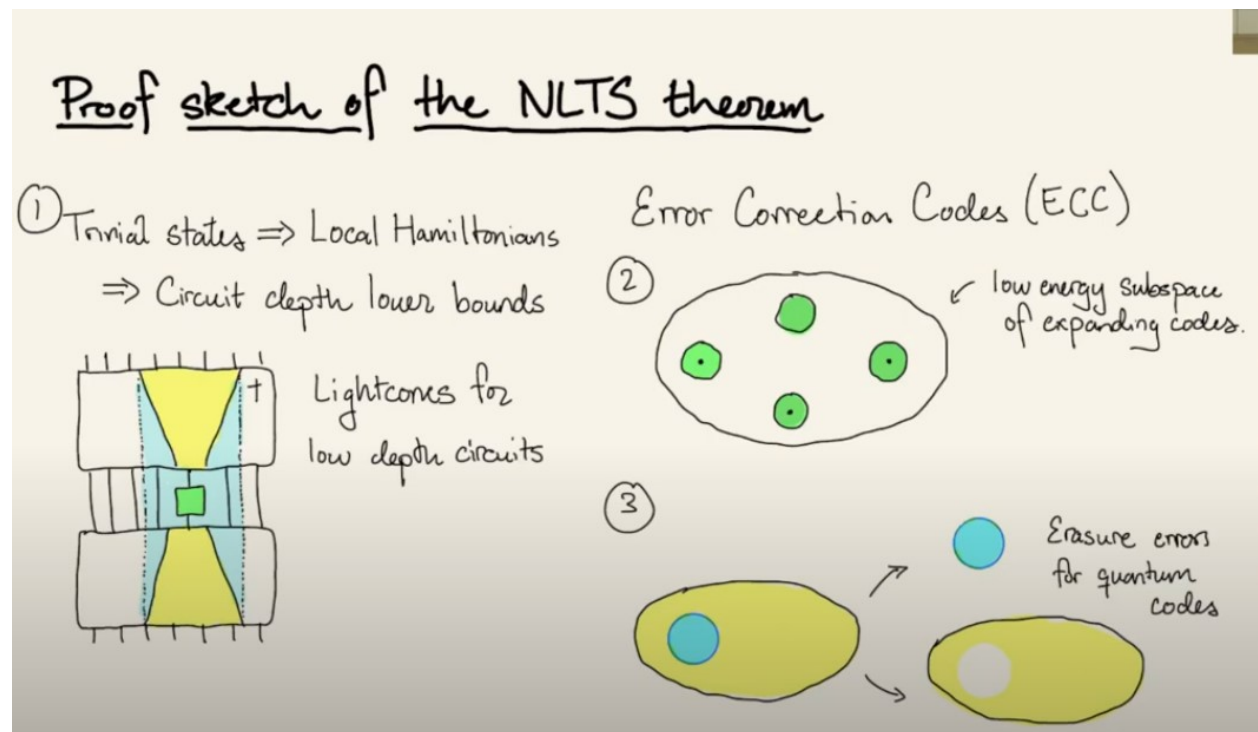 Proof sketch of the NLTS theorem
① Trivial states ⇒ Local Hamiltonians
⇒ Circuit depth lower bounds
†
Lightcones for
low depth circuits
Error Correction Codes (ECC)
②
low energy subspace
of expanding codes.
③
Erasure errors
for quantum
codes